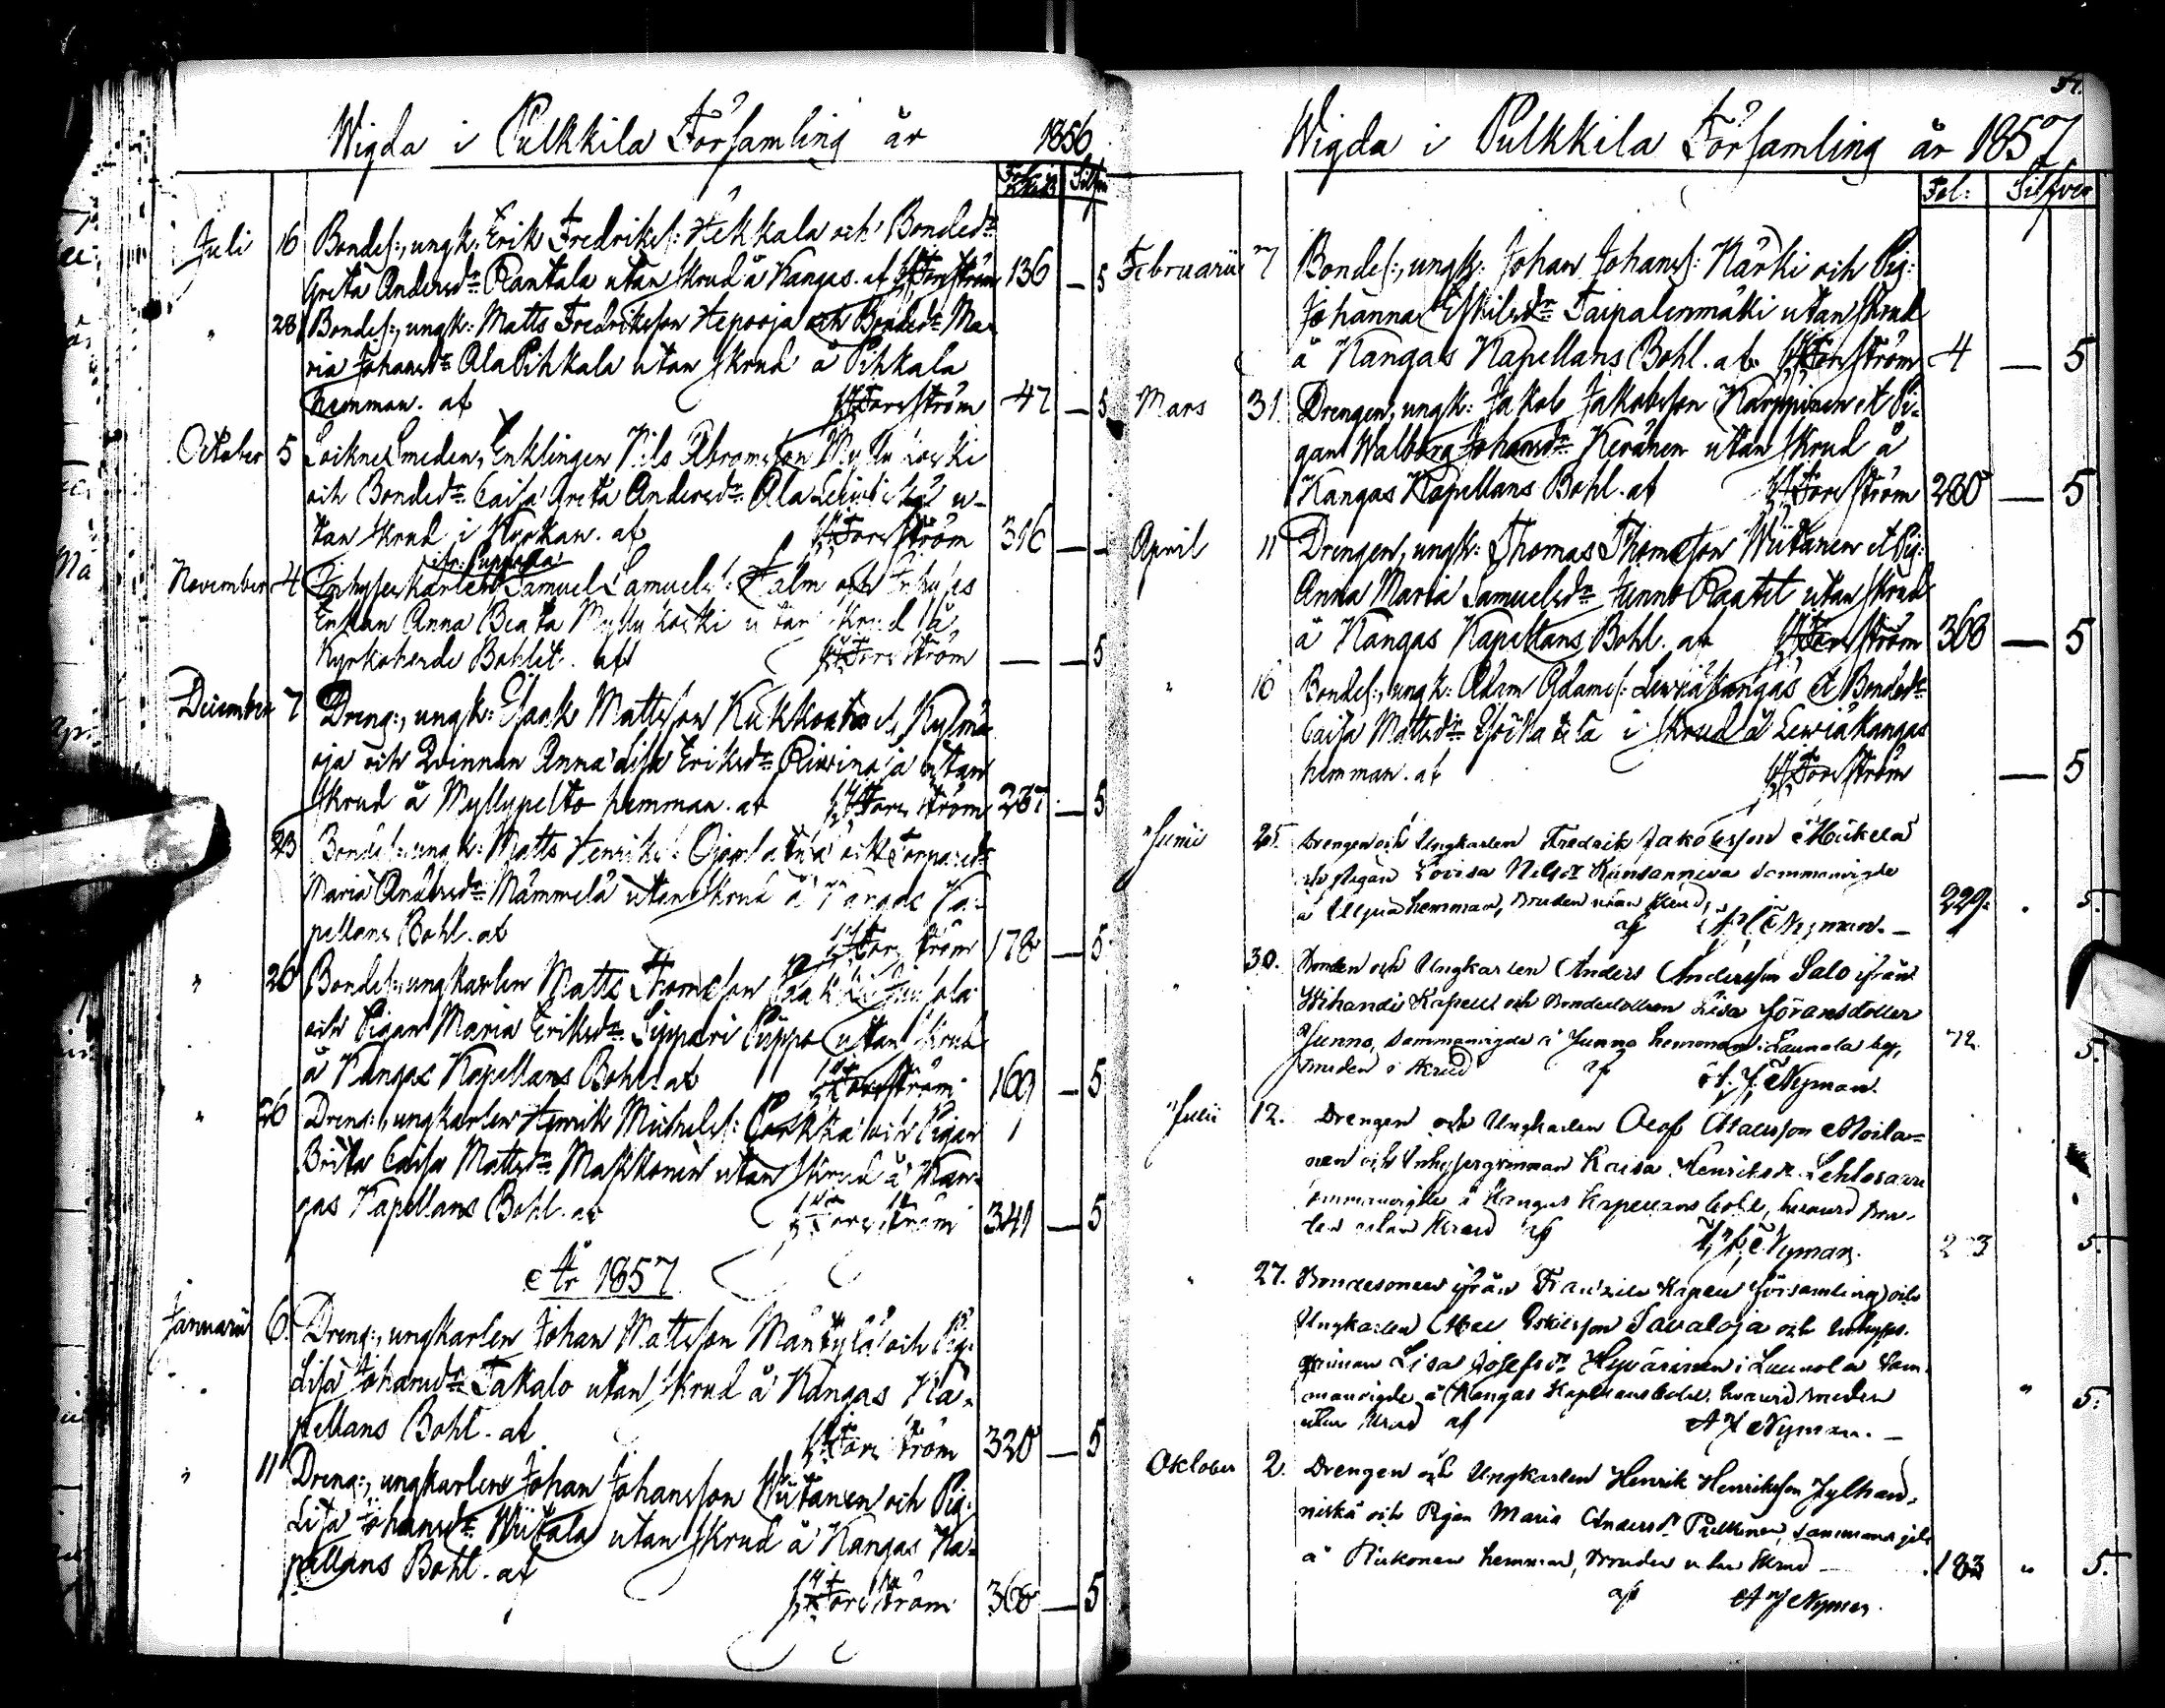 Wigda i Pulkkila Församling år 1856
Silfver
Juli 16 Bondes:, ungk: Erik Fredriks: Hekkala och Bonded:r
Greta Andersd:r Rantala utan skrud å Kangas. af Forsström 136 — 5
" 28 Bondes:, ungk: Matts Fredriksson Hepooja och Bonded:r Ma-
ria Johansd:r AlaPihkala utan skrud å Pihkala
hemman. af Forsström 47 — 5
October 5 Sockne Smeden, Enklingen Nils Abramsson Myllykoski
och Bonded:r Caisa Greta Andersd:r Ala u-
tan skrud i Kyrkan. af Forsström 316 — —
November 4 Inhyses Karlen Samuel Samuels: Falm och Inhyses
Enkan Anna Beata Myllykoski utan skrud å
Kyrkoherde Bohlet. af Forsström — — 5
December 7 Dreng:, ungk: Isaak Mattsson Kukkoaho
oja och Qvinnan Anna Lisa Eriksd:r utan
skrud å Myllypelto hemman. af Forsström 237 — 5
23 Bondes:, ungk: Matts Henriks: och Torpared:r
Maria Andersd:r Mämmelä utan skrud å Kangas Ka-
pellans Bohl. af Forsström 178 — 5
" 26 Bondes:, ungkarlen Matts Thomasson
och Pigan Maria Eriksd:r Sippari Pippo utan skrud
å Kangas Kapellans Bohl. af Forsström 169 — 5
" 26 Dreng:, ungkarlen Henrik Michels: och Pigan
Brita Caisa Mattsd:r Makkonen utan skrud å Kan-
gas Kapellans Bohl. af Forsström 341 — 5
År 1857
Januarii 6. Dreng:, ungkarlen Johan Mattsson Mäntylä och Pig:
Lisa Johansd:r Takalo utan skrud å Kangas Ka-
pellans Bohl. af Forsström 320 — 5
" 11 Dreng:, ungkarlen Johan Johansson Wiitanen och Pig:
Lisa Johansd:r Wiitala utan skrud å Kangas Ka-
pellans Bohl. af Forsström 368 — 5
57.
Wigda i Pulkkila Församling år 1857
Fol: Silfver
Februarii 7 Bondes:, ungk: Johan Johans: Kärki och Pig:
Johanna Eskilsd:r Taipalenmäki utan skrud
å Kangas Kapellans Bohl. af Forsström 4 — 5
Mars 31. Drengen, ungk: Jakob Jakobsson Karppinen et Pi-
gan Walborg Johansd:r Keränen utan skrud å
Kangas Kapellans Bohl. af Forsström 280 — 5
April 11 Drengen, ungk: Thomas Thomasson Wiitanen et Pig:
Anna Maria Samuelsd:r Junno Raatet utan skrud
å Kangas Kapellans Bohl. af Forsström 368 — 5
" 16 Bondes:, ungk: Adam Adams: Lewiäkangas et Bonded:r
Caisa Mattsd:r i skrud å Lewiäkangas
hemman. af Forsström — 5
Junii 25. Drengen och Ungkarlen Fredrik Jakobsson Mickela
och Pigan Lovisa Nilsdr sammanvigde
å hemman, bruden utan skrud,
af Nyman. — 229. " 5.
" 30. Bonden och Ungkarlen Anders Andersson Salo ifrån
Wihandi Kapell och Bondedottren Lisa Göransdotter
Junno, sammanvigde å Junno hemman i Laurola by,
bruden i skrud af Nyman. 72. 5.
Julii 12. Drengen och Ungkarlen Olof Olofsson Moila-
nen och Inhysesqvinnan Kaisa Henriksdr. Lehtosaari
sammanvigde å Kangas Kapellans bohl, bru-
den utan skrud af Nyman. 5.
" 27. Bondesonen ifrån Frantsila Kapell församling och
Ungkarlen Eskilsson Savaloja och Inhyses-
qvinnan Lisa Josefsdr. Hyvärinen i Laurola sam-
manvigde å Kangas Kapellans bohl, bruden
utan skrud af Nyman. — " 5.
Oktober 2. Drengen och Ungkarlen Henrik Henriksson Jylhän-
niskä och Pigan Maria Andersdr. Pulkinen, sammanvigde
å hemman, bruden utan skrud — 183 " 5.
af Nyman.